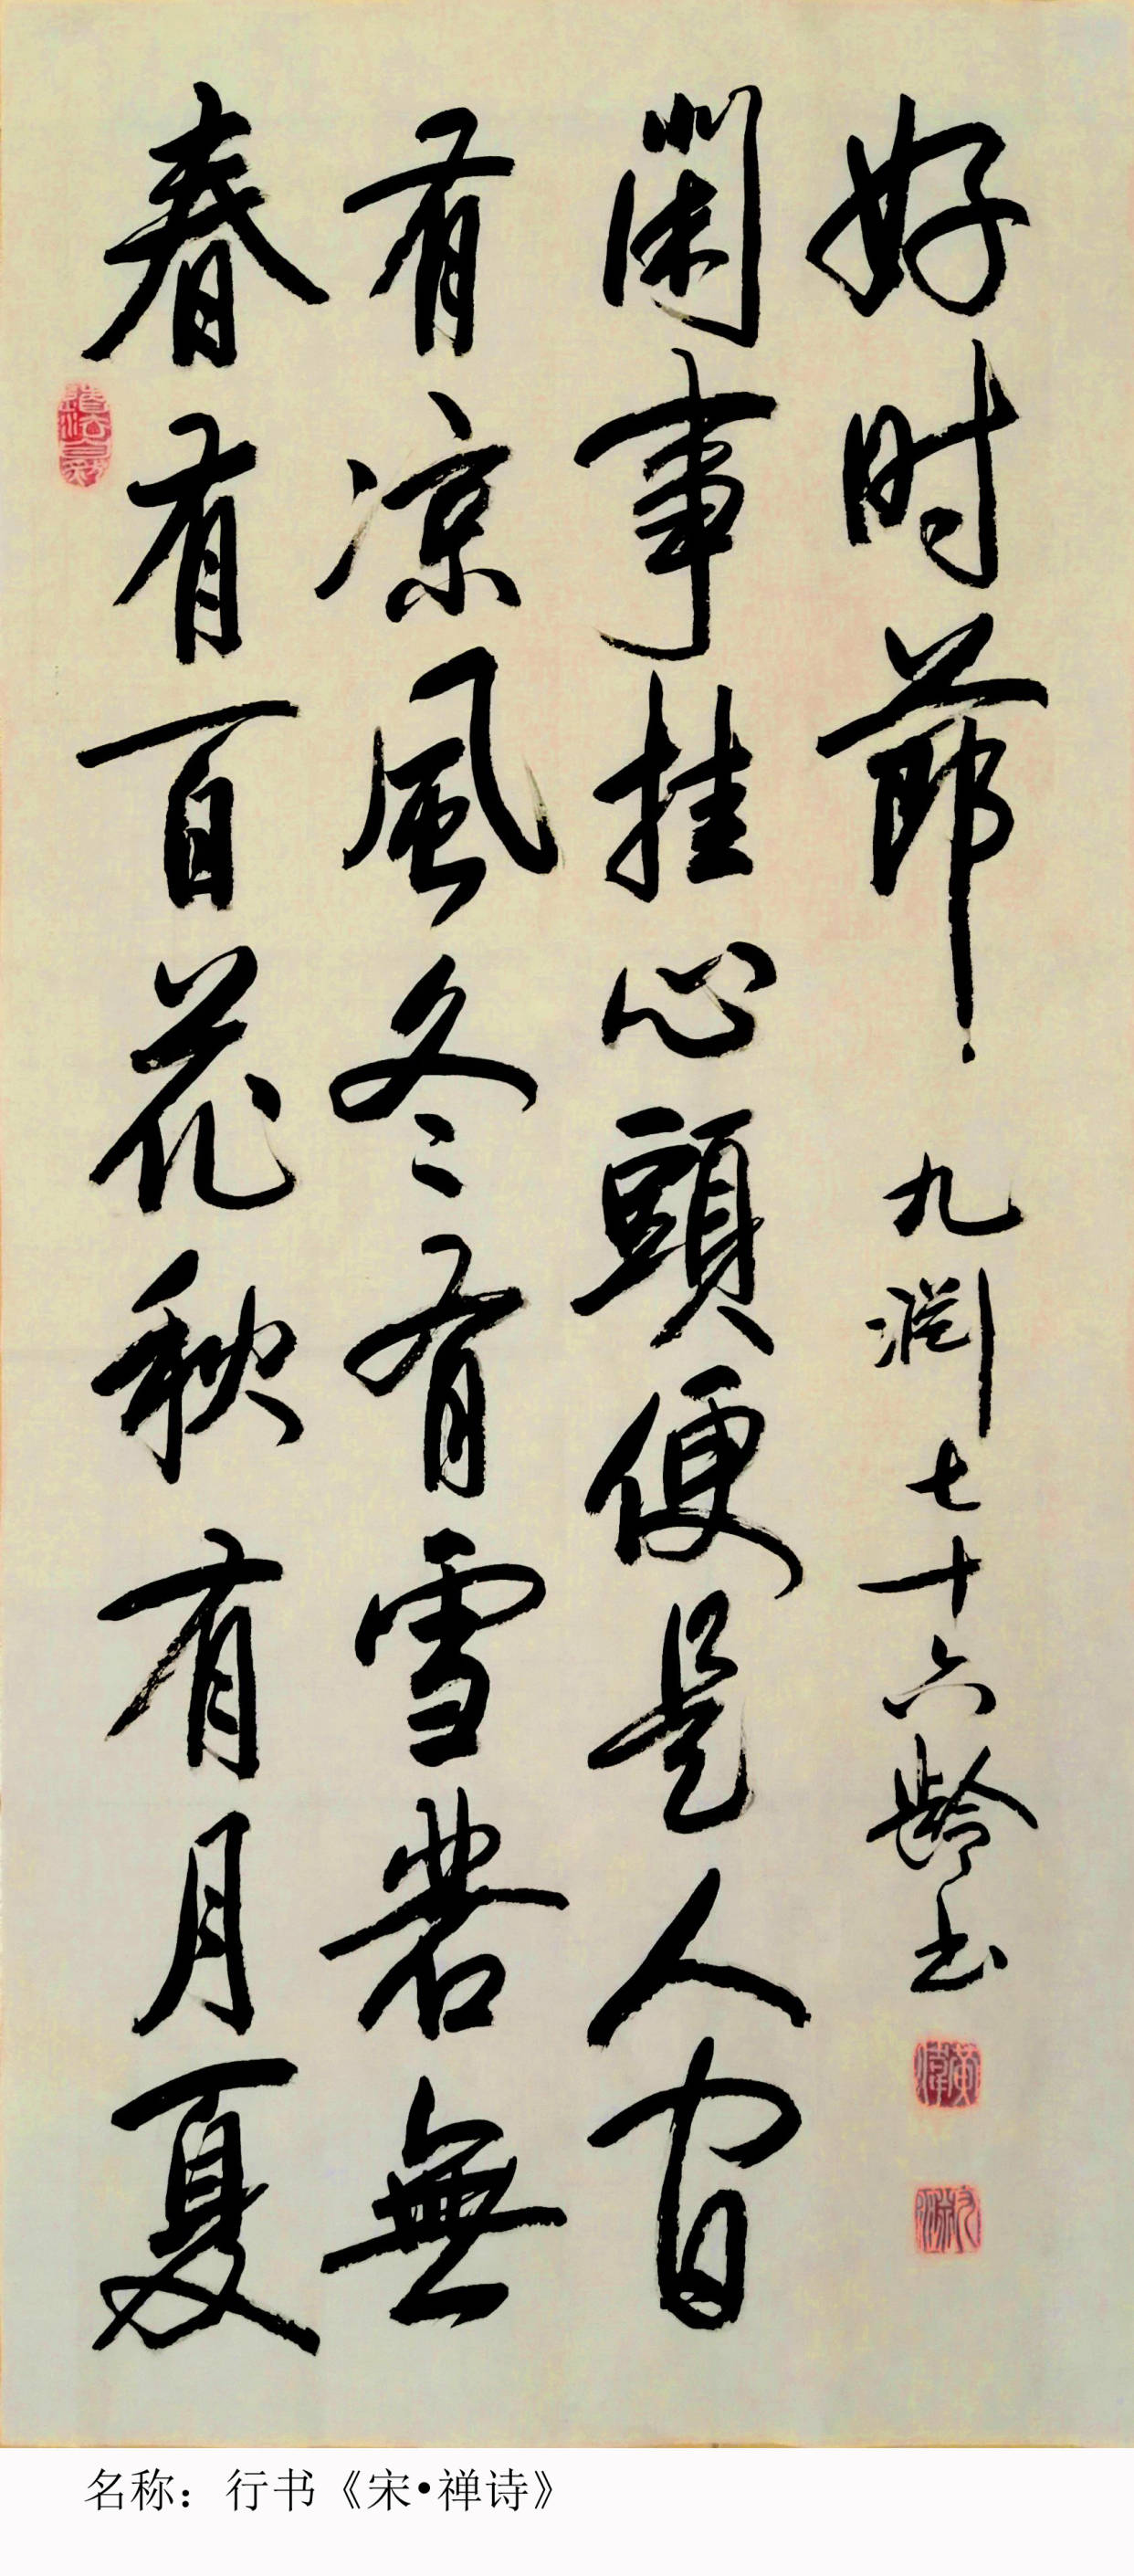 春有百花秋有月夏
有凉風冬有雪若無
閑事挂心頭便是人间
好时節
九渊七十六龄书
黄偉
九淵
名称：行书《宋•禅诗》